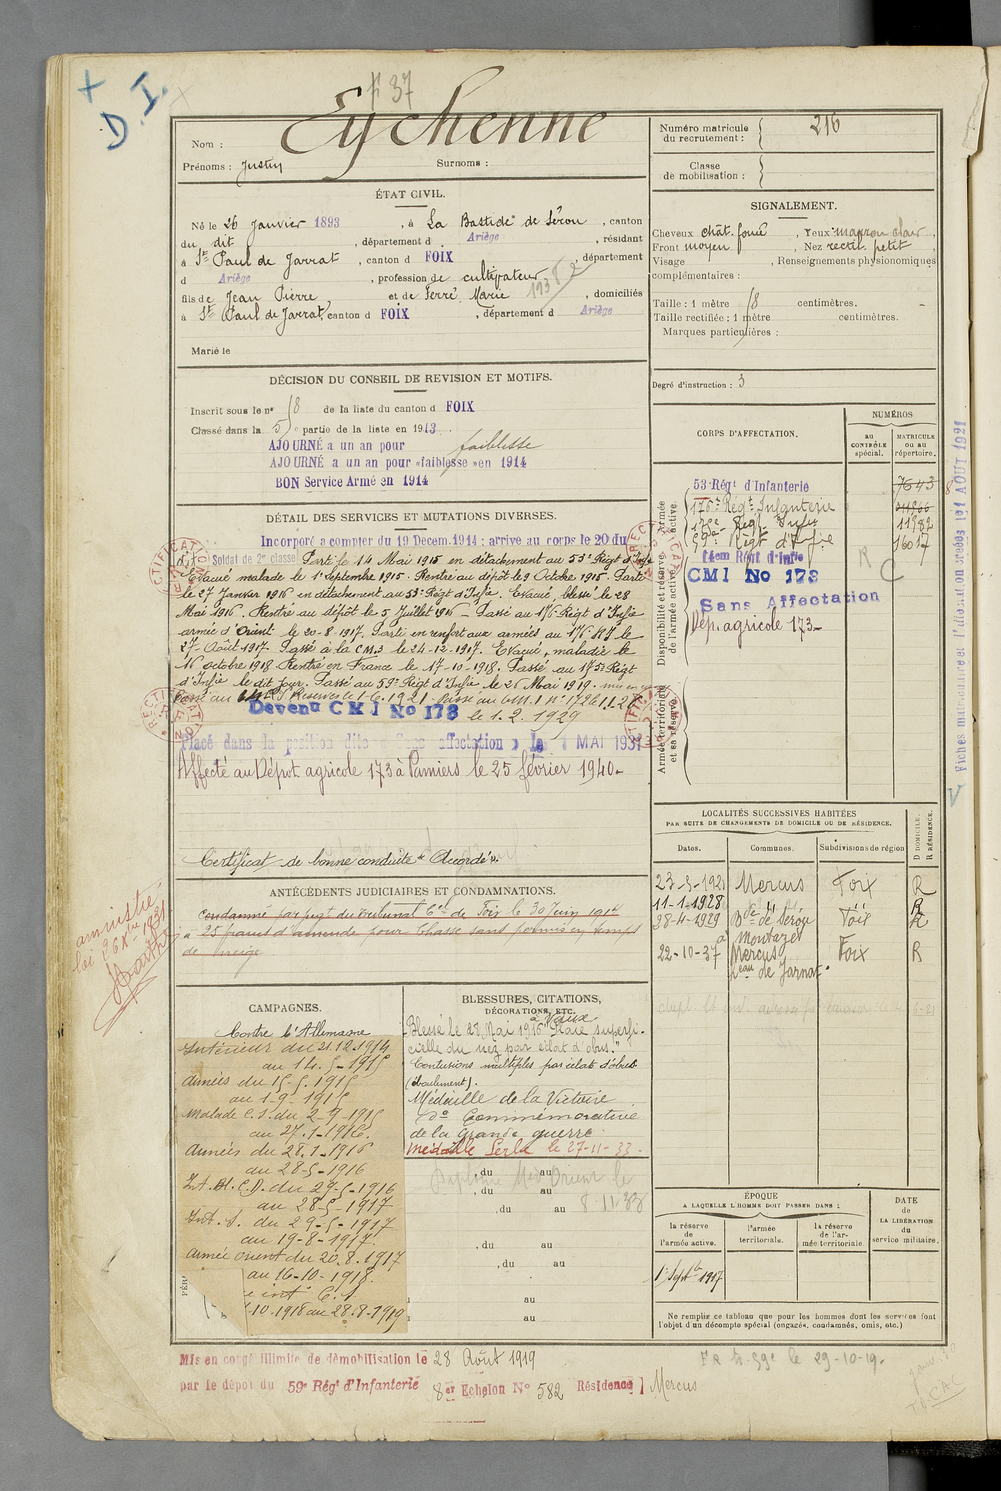 +
D. I.
F 37
Nom : Eychenne
Prénoms : Justin Surnoms :
Numéro matricule du recrutement : 216
Classe de mobilisation :
ÉTAT CIVIL.
Né le 26 Janvier 1893, à La Bastide de Sérou, canton
du dit, département d Ariège, résidant
à St Paul de Jarrat, canton d FOIX, département
d Ariège, profession de cultivateur
fils de Jean Pierre, et de Serre, Marie, domiciliés
à St Paul de Jarrat, canton d FOIX, département d Ariège
Marié le
SIGNALEMENT.
Cheveux chât. foncé, Yeux marron clair,
Front moyen, Nez rectil. petit,
Visage , Renseignements physionomiques
complémentaires :
Taille : 1 mètre 58 centimètres.
Taille rectifiée : 1 mètre centimètres.
Marques particulières :
Degré d'instruction : 3
DÉCISION DU CONSEIL DE REVISION ET MOTIFS.
Inscrit sous le n° 58 de la liste du canton d FOIX
Classé dans la 5e partie de la liste en 1913.
AJOURNÉ a un an pour faiblesse
AJOURNÉ a un an pour «faiblesse »en 1914
BON Service Armé en 1914
CORPS D'AFFECTATION.
NUMÉROS
AU CONTRÔLE spécial.
MATRICULE ou au répertoire.
Armée active
53e Régt d'Infanterie 7643
176e Régt Infanterie
175e Régt Infie 11982
59e Régt d'Infie 16017
Disponibilité et réserve de l'armée active
14em Régt d'Infie
CMI No 173
Sans Affectation
Dép. agricole 173
R C
Armée territoriale et sa réserve
DÉTAIL DES SERVICES ET MUTATIONS DIVERSES.
Incorporé a compter du 19 Décem. 1914 : arrive au corps le 20 du
dit Soldat de 2e classe Parti le 14 Mai 1915 en détachement au 53e Régt d'Infie
Evacué malade le 1er Septembre 1915 - Rentré au dépôt le 9 Octobre 1915. Parti
le 27 Janvier 1916 en détachement au 53e Régt d'Infie. Evacué, blessé le 28
Mai 1916. Rentré au dépôt le 5 Juillet 1916 - Passé au 176e Régt d'Infie
armée d'Orient le 20-8-1917. Parti en renfort aux armées au 176e RI le
27-Août 1917. Passé à la CM3 le 24-12-1917. Evacué, maladie le
16 octobre 1918 Rentré en France le 17-10-1918. Passé au 175e Régt
d'Infie le dit jour. Passé au 59e Régt d'Infie le 26 Mai 1919.
le 1. 2. 1929
Devenu CMI No 173
Placé dans la position dite « Sans affectation » Le MAI 1931
Affecté au Dépot agricole 173 à Pamiers le 25 février 1940-
Certificat de bonne conduite "Accordé".
RECTIFICATION
Fiches matricules et
1er AOUT 1921
LOCALITÉS SUCCESSIVES HABITÉES
PAR SUITE DE CHANGEMENTS DE DOMICILE OU DE RÉSIDENCE.
Dates. Communes. Subdivisions de région
D DOMICILE. R RÉSIDENCE.
23-5-1921 Mercus Foix R
11-1-1928 " " R
28-4-1929 Bde de Sérou Foix R
à Montazet
22-10-37 Mercus Foix R
ANTÉCÉDENTS JUDICIAIRES ET CONDAMNATIONS.
Condamné par jugt du tribunal Cel de Foix le 30 Juin 1914
à 25 francs d'amende pour chasse sans permis en temps
de neige
amnistié
CAMPAGNES.
Contre l'Allemagne
Intérieur du 21.12.1914
au 14.5-1915
Armées du 15-5-1915
au 1.9.1915
Malade C.S. du 2-9-1915
au 27.1-1916.
Armées du 28.1-1916
au 28-5-1916
Int. Bl. C.D. du 29-5-1916
au 28-5-1917
Int. S. du 29-5-1917
au 19-8-1917
Armée orient du 20.8.1917
au 16-10-1918.
10-1918 au 28.8-1919
BLESSURES, CITATIONS,
DÉCORATIONS, ETC.
à Vaux
Blessé le 28 Mai 1916 "Plaie superfi-
cielle du nez par éclat d'obus."
Contusions multiples par éclats d'obus
(éboulement).
Médaille de la Victoire
do Commémorative
de la Grande guerre
Médaille Serbe le 27-11-33.
Diplôme Med Orient le
, du au
, du au
, du au
, du au
, du au
au
au
ÉPOQUE
A LAQUELLE L'HOMME DOIT PASSER DANS :
la réserve de l'armée active.
l'armée territoriale.
la réserve de l'armée territoriale
DATE de LA LIBÉRATION du service militaire.
1er Septbre 1917
Ne remplir ce tableau que pour les hommes dont les services font
l'objet d'un décompte spécial (engagés, condamnés, omis, etc.)
Mis en congé illimité de démobilisation le 28 Août 1919
par le dépôt du 59e Régt d'Infanterie 8er Echelon No 582 Résidence Mercus